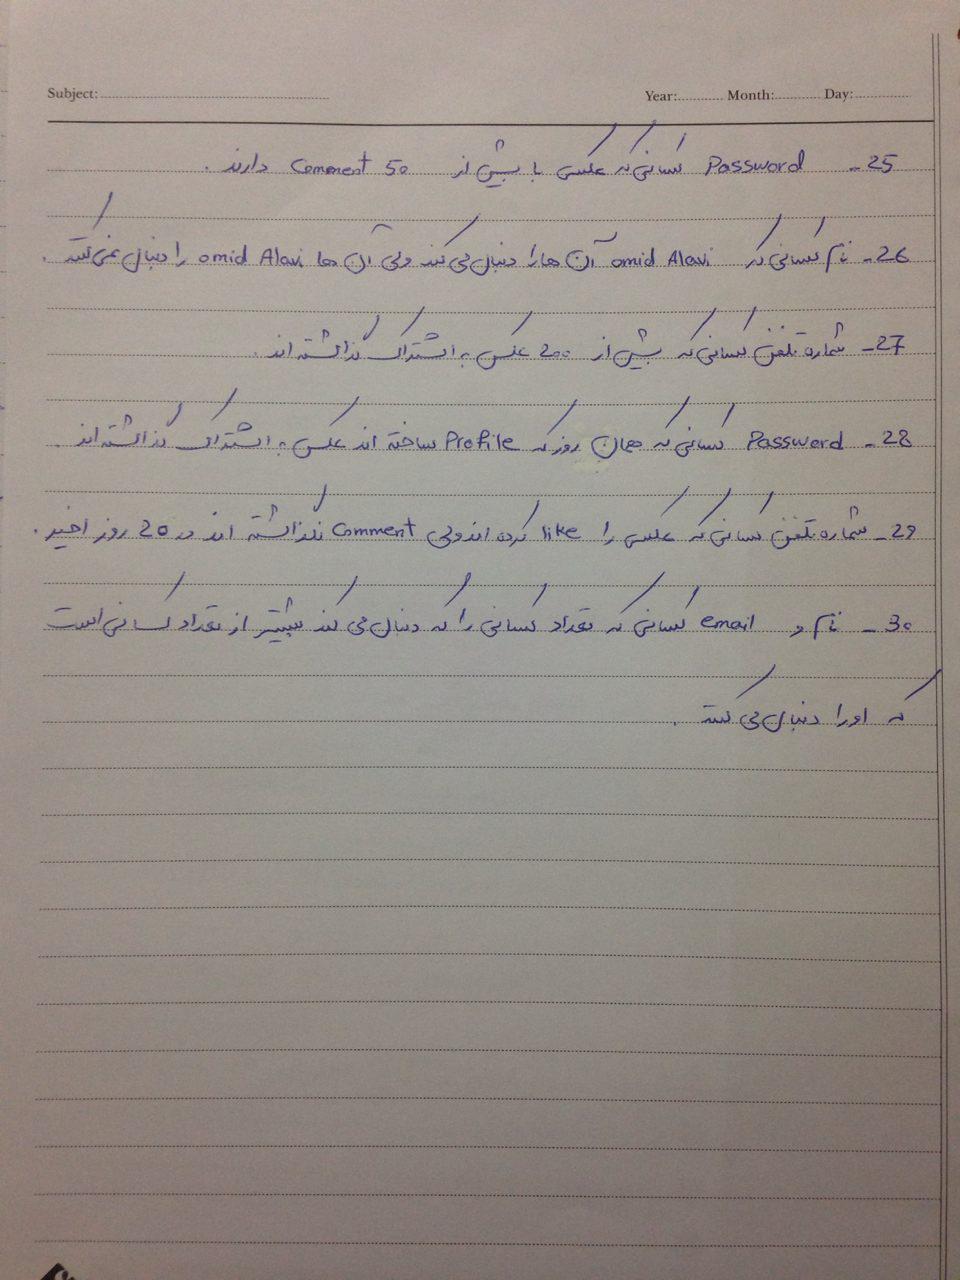 Subject: Year: Month: Day:
25- Password کسانی که عکسی با بیش از 50 Comment دارند.
26- نام کسانی که omid Alavi آن ها را دنبال می کند ولی آن ها omid Alavi را دنبال نمی کنند.
27- شماره تلفن کسانی که بیش از 200 عکس به اشتراک گذاشته اند.
28- Password کسانی که همان روز که Profile ساخته اند عکس به اشتراک گذاشته اند.
29- شماره تلفن کسانی که عکسی را like کرده اند ولی Comment نگذاشته اند در 20 روز اخیر.
30- نام و email کسانی که تعداد کسانی را که دنبال می کند بیشتر از تعداد کسانی است
که او را دنبال می کنند.